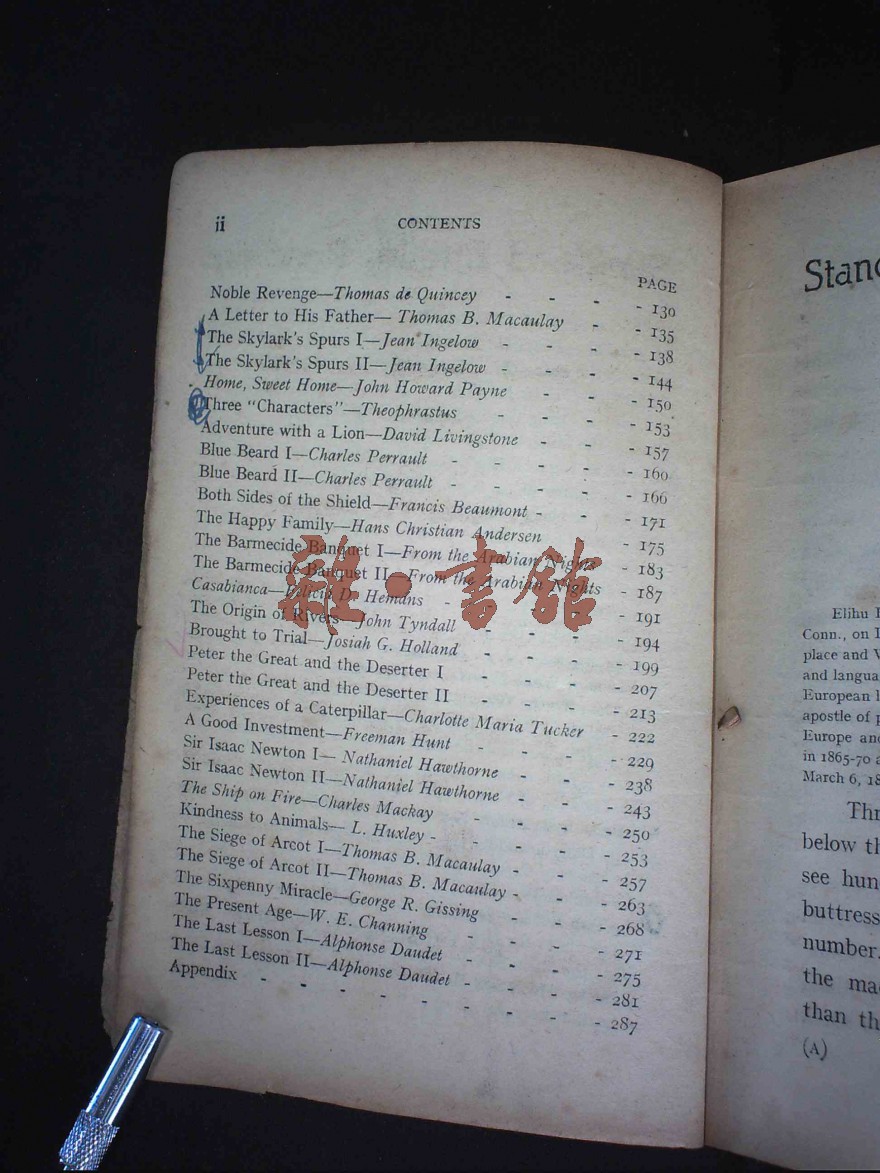 ii CONTENTS
PAGE
Noble Revenge—Thomas de Quincey - - - - 130
A Letter to His Father— Thomas B. Macaulay - - 135
The Skylark's Spurs I—Jean Ingelow - - - - 138
The Skylark's Spurs II—Jean Ingelow - - - - 144
Home, Sweet Home—John Howard Payne - - - 150
Three "Characters"—Theophrastus - - - - 153
Adventure with a Lion—David Livingstone - - - 157
Blue Beard I—Charles Perrault - - - - - 160
Blue Beard II—Charles Perrault - - - - - 166
Both Sides of the Shield—Francis Beaumont - - - 171
The Happy Family—Hans Christian Andersen - - 175
The Barmecide Banquet I—From the Arabian Nights - 183
The Barmecide Banquet II—From the Arabian Nights - 187
Casabianca—Felicia D. Hemans - - - - - 191
The Origin of Rivers—John Tyndall - - - - 194
Brought to Trial—Josiah G. Holland - - - - 199
Peter the Great and the Deserter I - - - - 207
Peter the Great and the Deserter II - - - - 213
Experiences of a Caterpillar—Charlotte Maria Tucker - 222
A Good Investment—Freeman Hunt - - - - 229
Sir Isaac Newton I— Nathaniel Hawthorne - - - 238
Sir Isaac Newton II—Nathaniel Hawthorne - - - 243
The Ship on Fire—Charles Mackay - - - - 250
Kindness to Animals— L. Huxley - - - - - 253
The Siege of Arcot I—Thomas B. Macaulay - - - 257
The Siege of Arcot II—Thomas B. Macaulay - - - 263
The Sixpenny Miracle—George R. Gissing - - - 268
The Present Age—W. E. Channing - - - - 271
The Last Lesson I—Alphonse Daudet - - - - 275
The Last Lesson II—Alphonse Daudet - - - - 281
Appendix - - - - - - - - - 287
雜·書館
Elihu
Conn., on
place and
and langua
European
apostle of p
Europe and
in 1865-70
March 6, 18
below th
see hun
buttress
number.
the ma
than th
(A)